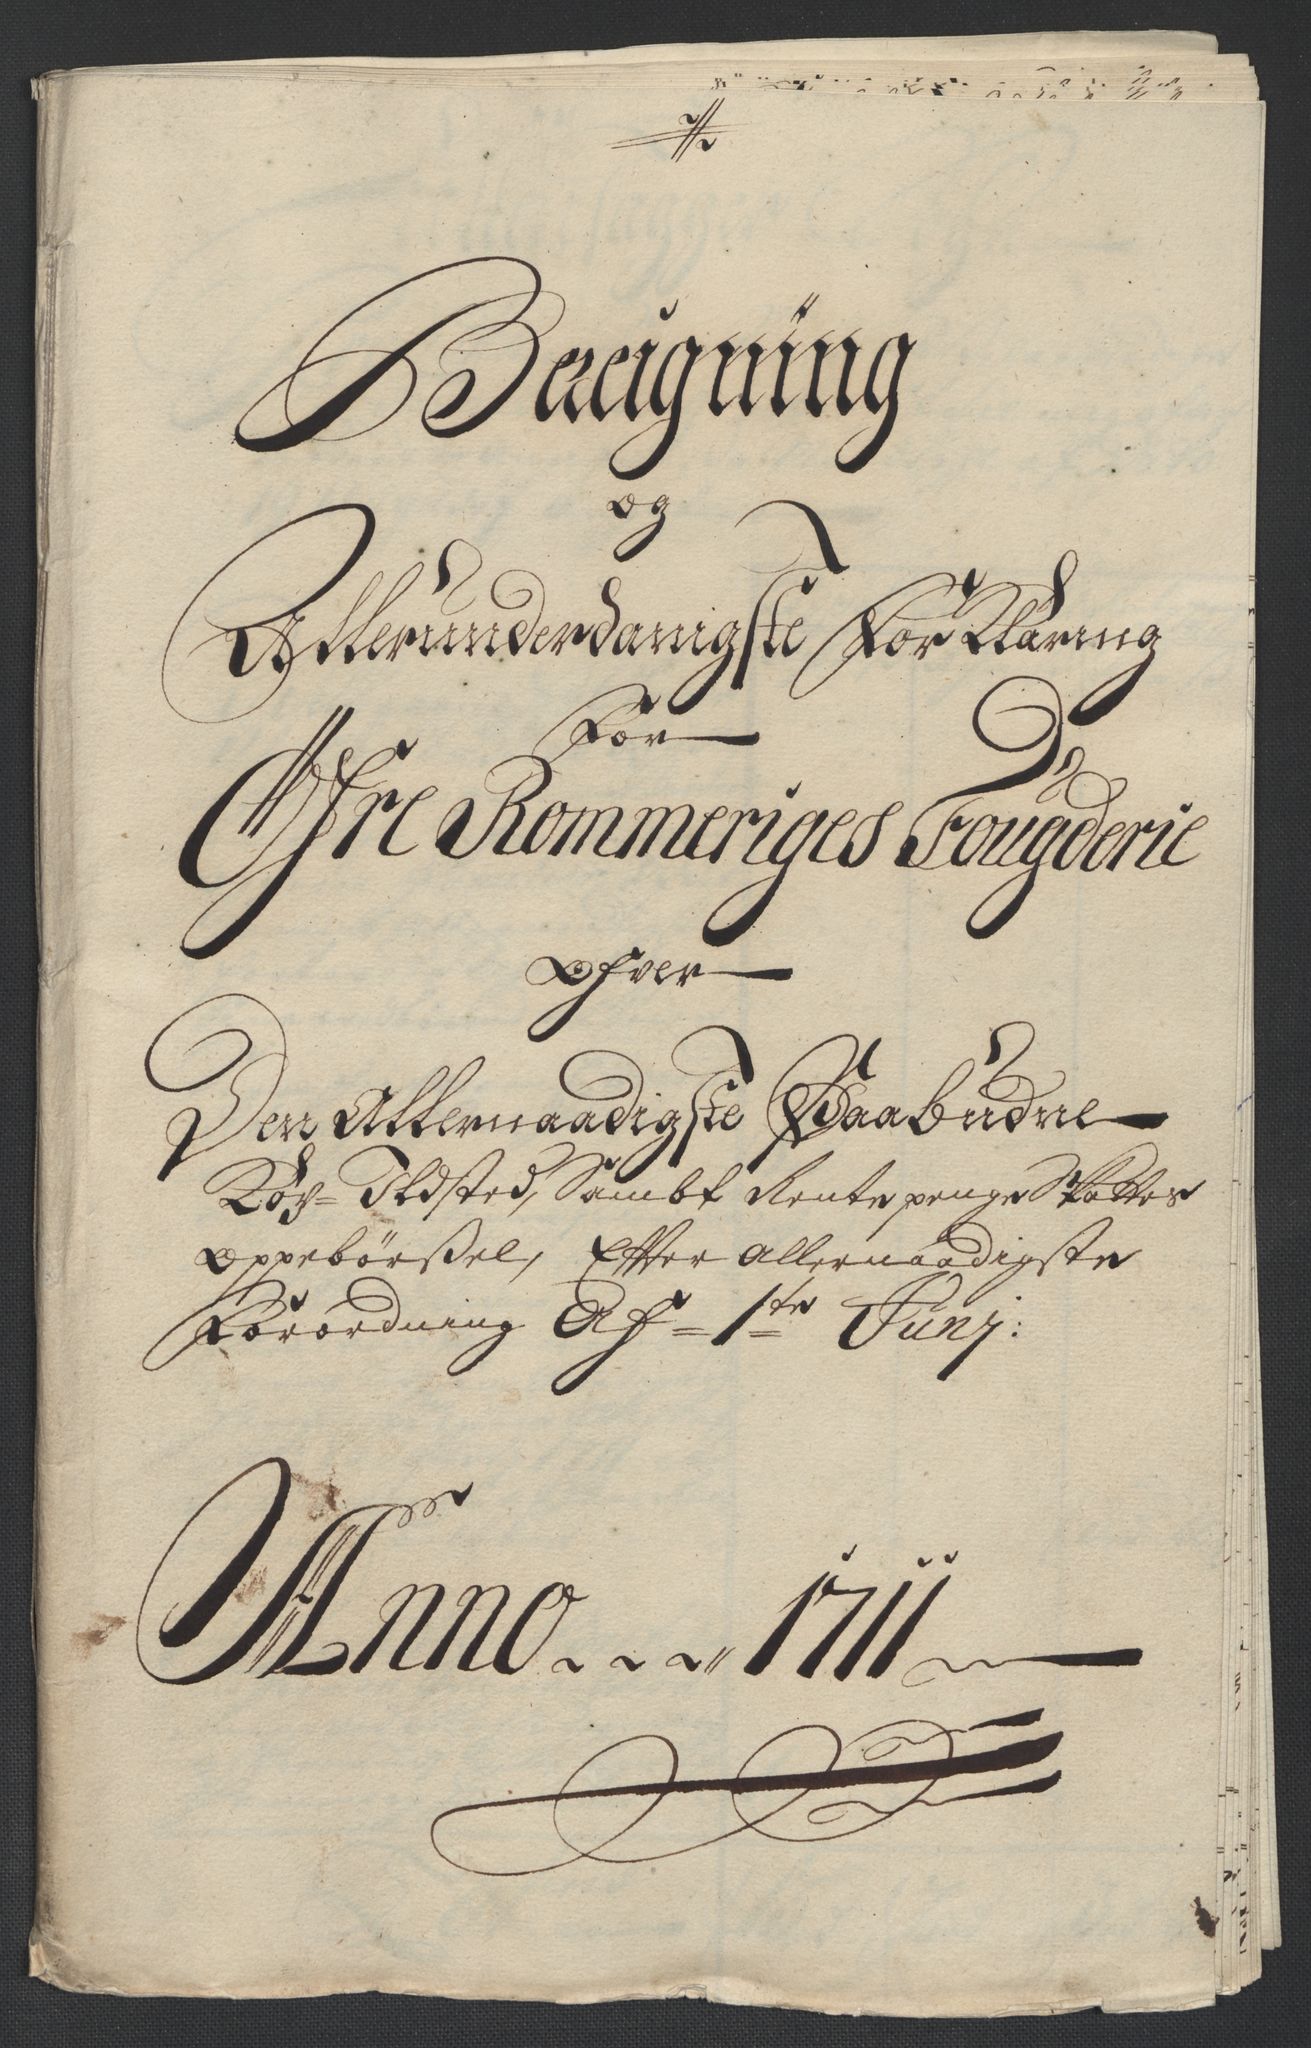 Bereigning
og
Allerunderdanigste For Klaring
For
Øfre Rommeriges Fougderie
Ofver
Den Allernaadigste Paabudne
Køy- Ildsted, Sambt Rentepenge Skatters
oppebørßel, Effter allernaadigste
Forordning Af 1te Junj:
Anno 1711